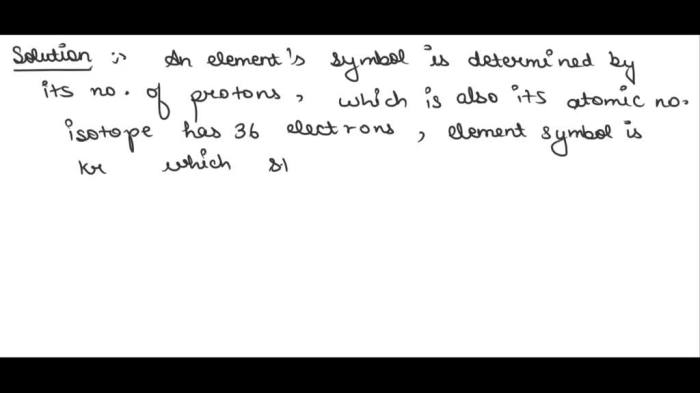 Solution :→ An element's symbol is determined by
its no. of protons, which is also its atomic no.
isotope has 36 electrons, element symbol is
Kr which st